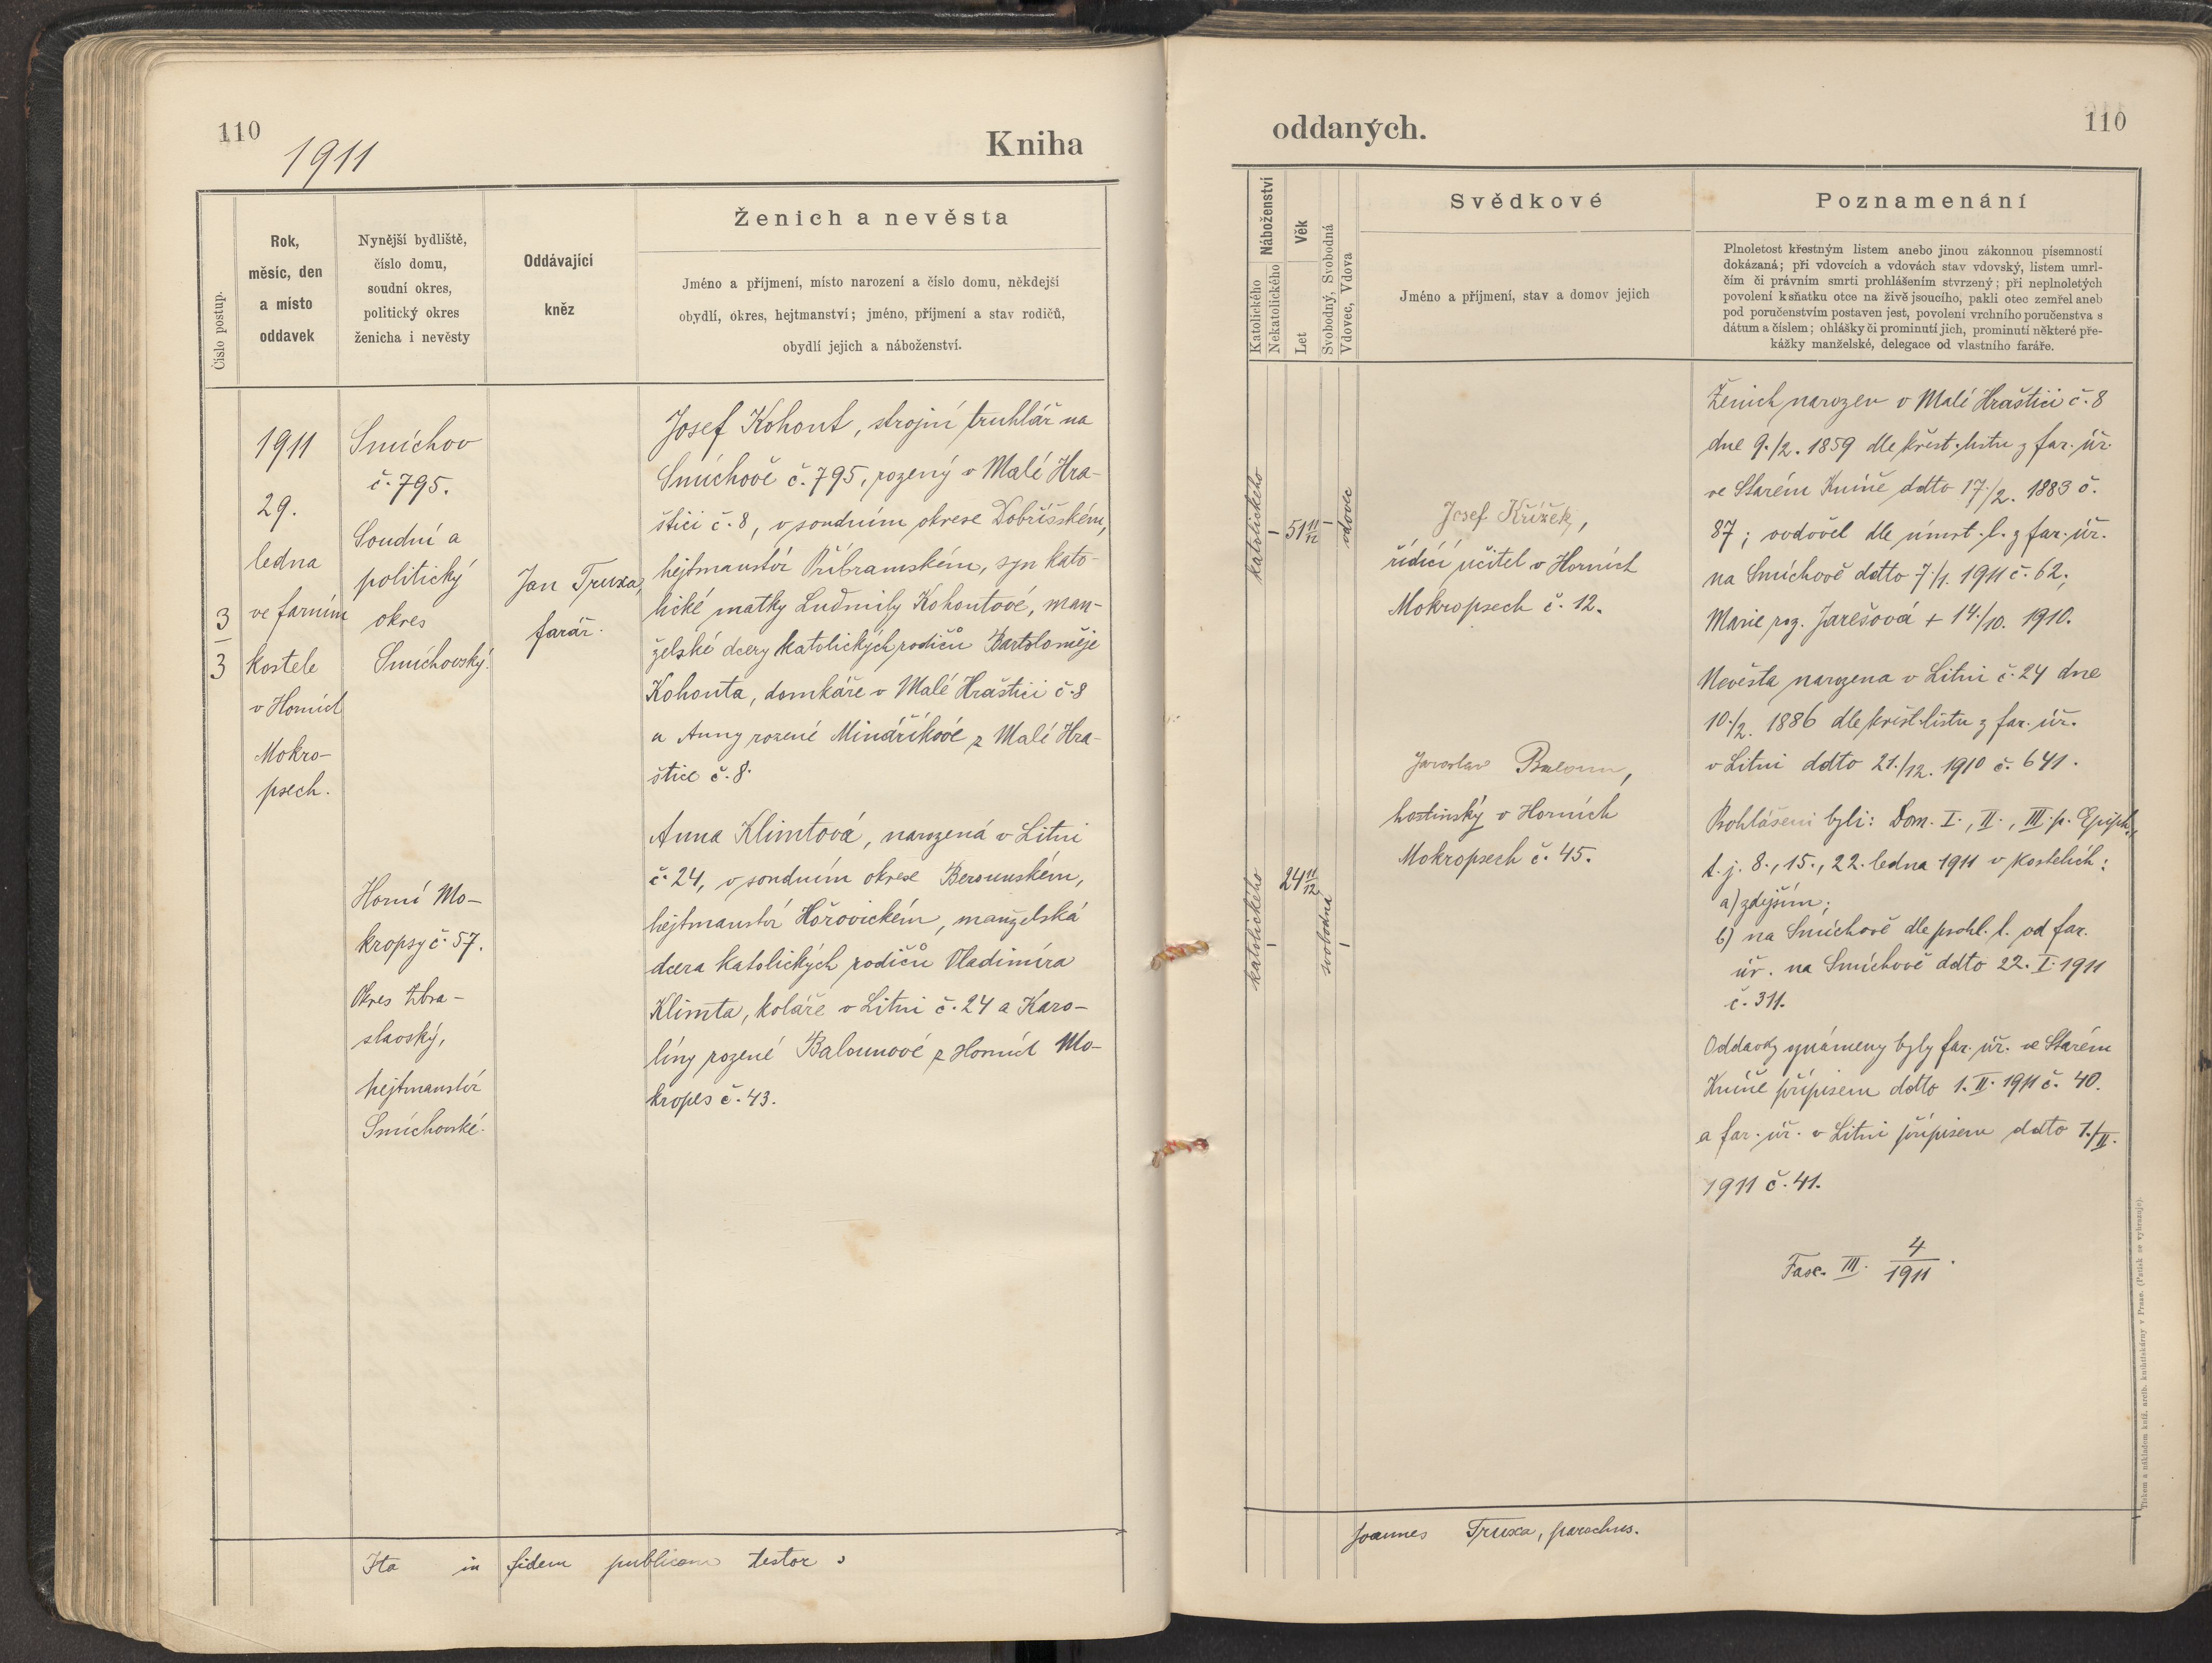 110
1911
Kniha
Číslo postup.
Rok,
měsíc, den
a místo
oddavek
Nynější bydliště,
číslo domu,
soudní okres,
politický okres
ženicha i nevěsty
Oddávající
kněz
Ženich a nevěsta
Jméno a příjmení, místo narození a číslo domu, někdejší
obydlí, okres, hejtmanství; jméno, příjmení a stav rodičů,
obydlí jejich a náboženství.
3
3
1911
29.
ledna
ve farním
kostele
v Horních
Mokro-
psech.
Smíchov
č. 795.
Soudní a
politický
okres
Smíchovský.
Horní Mo-
kropsy č. 57.
Okres Zbra-
slavský,
hejtmanství
Smíchovské.
Jan Truxa,
farář.
Josef Kohout, strojní truhlář na
Smíchově č. 795, rozený v Malé Hra-
štici č. 8, v soudním okrese Dobříšském,
hejtmanství Příbramském, syn kato-
lické matky Ludmily Kohoutové, man-
želské dcery katolických rodičů Bartoloměje
Kohouta, domkáře v Malé Hraštici č. 8
a Anny rozené Minaříkové z Malé Hra-
štice č. 8.
Anna Klimtová, narozená v Litni
č. 24, v soudním okrese Berounském,
hejtmanství Hořovickém, manželská
dcera katolických rodičů Vladimíra
Klimta, koláře v Litni č. 24 a Karo-
líny rozené Balounové z Horních Mo-
kropes č. 43.
Ita in fidem publicam testor:
oddaných.
110
Náboženství
Katolického
Nekatolického
Věk
Let
Svobodný, Svobodná
Vdovec, Vdova
Svědkové
Jméno a příjmení, stav a domov jejich
Poznamenání
Plnoletost křestným listem anebo jinou zákonnou písemností
dokázaná; při vdovcích a vdovách stav vdovský, listem umrl-
čím či právním smrti prohlášením stvrzený; při neplnoletých
povolení k sňatku otce na živě jsoucího, pakli otec zemřel aneb
pod poručenstvím postaven jest, povolení vrchního poručenstva s
dátum a číslem; ohlášky či prominutí jich, prominutí některé pře-
kážky manželské, delegace od vlastního faráře.
katolického
–
51 11/12
–
vdovec
katolického
–
24 11/12
svobodná
–
Josef Křížek,
řídící učitel v Horních
Mokropsech č. 12.
Jaroslav Baloun,
hostinský v Horních
Mokropsech č. 45.
Ženich narozen v Malé Hraštici č. 8
dne 9./2. 1859 dle křest. listu z far. úř.
ve Starém Kníně ddto 17./2. 1883 č.
87; ovdověl dle úmrt. l. z far. úř.
na Smíchově ddto 7./1. 1911 č. 62;
Marie roz. Jarešová + 14./10. 1910.
Nevěsta narozena v Litni č. 24 dne
10./2. 1886 dle křest. listu z far. úř.
v Litni ddto 21./12. 1910 č. 641.
Prohlášeni byli: Dom. I., II., III. p. Epiph.,
t. j. 8., 15., 22. ledna 1911 v kostelích:
a) zdejším;
b) na Smíchově dle prohl. l. od far.
úř. na Smíchově ddto 22. I. 1911
č. 311.
Oddavky oznámeny byly far. úř. ve Starém
Kníně přípisem ddto 1. II. 1911 č. 40.
a far. úř. v Litni přípisem ddto 1./II.
1911 č. 41.
Fasc. III. 4/1911.
Joannes Truxa, parochus.
Tiskem a nákladem kníž. arcib. knihtiskárny v Praze. (Patisk se vyhrazuje).